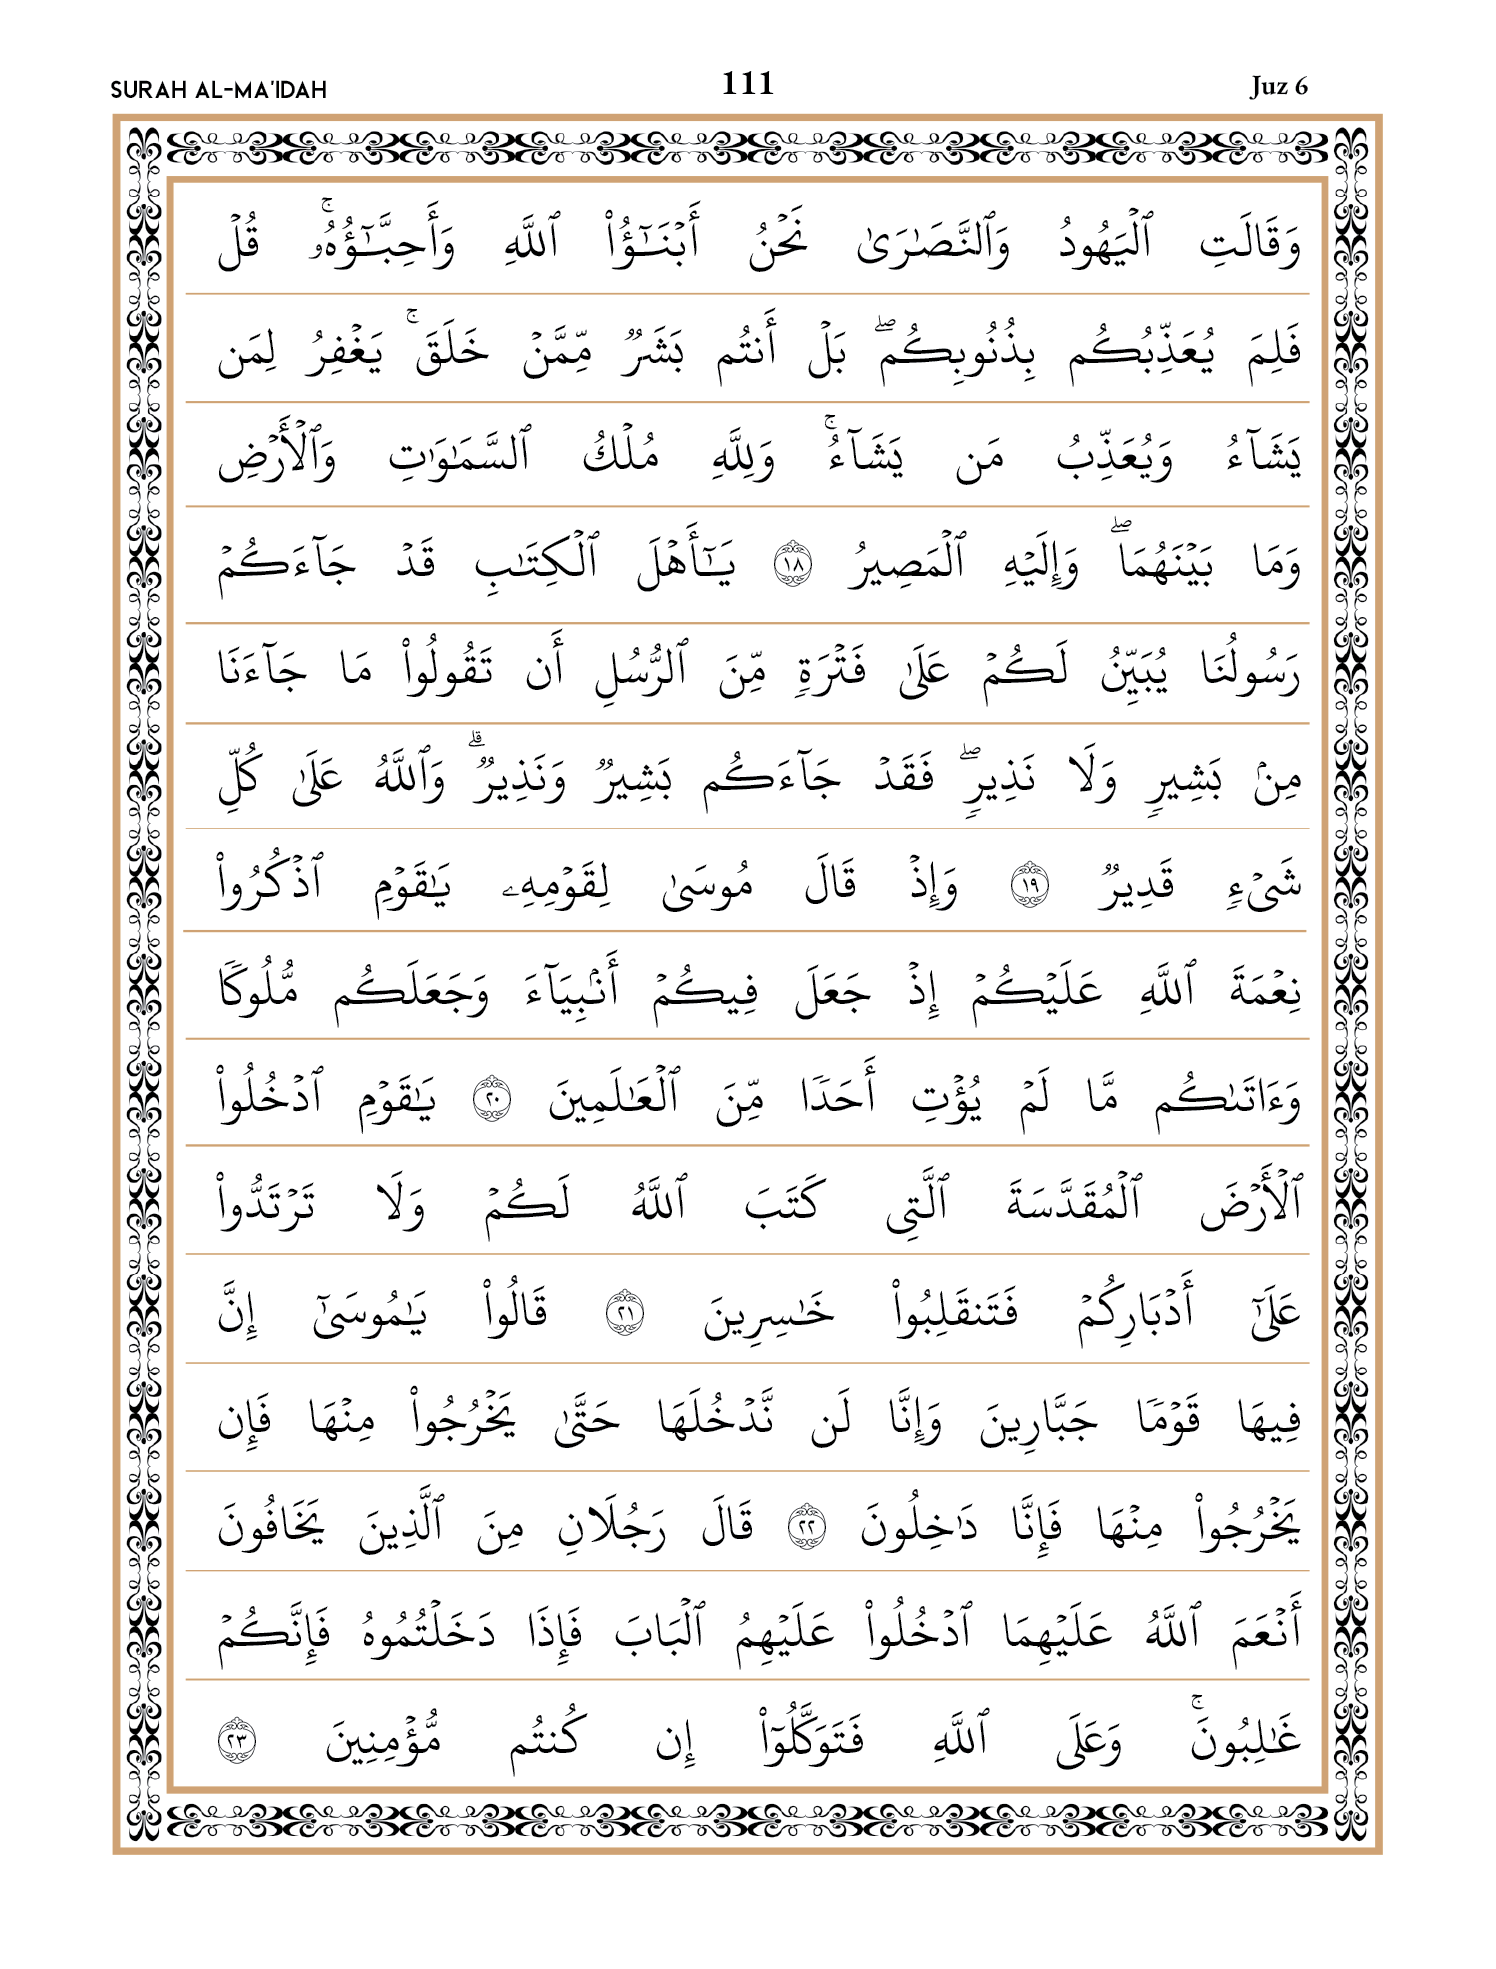 SURAH AL-MA'IDAH 111 Juz 6
وَقَالَتِ ٱلْيَهُودُ وَٱلنَّصَـٰرَىٰ نَحْنُ أَبْنَـٰٓؤُا۟ ٱللَّهِ وَأَحِبَّـٰٓؤُهُۥ ۚ قُلْ
فَلِمَ يُعَذِّبُكُم بِذُنُوبِكُم ۖ بَلْ أَنتُم بَشَرٌ مِّمَّنْ خَلَقَ ۚ يَغْفِرُ لِمَن
يَشَآءُ وَيُعَذِّبُ مَن يَشَآءُ ۚ وَلِلَّهِ مُلْكُ ٱلسَّمَـٰوَٰتِ وَٱلْأَرْضِ
وَمَا بَيْنَهُمَا ۖ وَإِلَيْهِ ٱلْمَصِيرُ ١٨ يَـٰٓأَهْلَ ٱلْكِتَـٰبِ قَدْ جَآءَكُمْ
رَسُولُنَا يُبَيِّنُ لَكُمْ عَلَىٰ فَتْرَةٍ مِّنَ ٱلرُّسُلِ أَن تَقُولُوا۟ مَا جَآءَنَا
مِنۢ بَشِيرٍ وَلَا نَذِيرٍ ۖ فَقَدْ جَآءَكُم بَشِيرٌ وَنَذِيرٌ ۗ وَٱللَّهُ عَلَىٰ كُلِّ
شَىْءٍ قَدِيرٌ ١٩ وَإِذْ قَالَ مُوسَىٰ لِقَوْمِهِۦ يَـٰقَوْمِ ٱذْكُرُوا۟
نِعْمَةَ ٱللَّهِ عَلَيْكُمْ إِذْ جَعَلَ فِيكُمْ أَنۢبِيَآءَ وَجَعَلَكُم مُّلُوكًا
وَءَاتَىٰكُم مَّا لَمْ يُؤْتِ أَحَدًا مِّنَ ٱلْعَـٰلَمِينَ ٢٠ يَـٰقَوْمِ ٱدْخُلُوا۟
ٱلْأَرْضَ ٱلْمُقَدَّسَةَ ٱلَّتِى كَتَبَ ٱللَّهُ لَكُمْ وَلَا تَرْتَدُّوا۟
عَلَىٰٓ أَدْبَارِكُمْ فَتَنقَلِبُوا۟ خَـٰسِرِينَ ٢١ قَالُوا۟ يَـٰمُوسَىٰٓ إِنَّ
فِيهَا قَوْمًا جَبَّارِينَ وَإِنَّا لَن نَّدْخُلَهَا حَتَّىٰ يَخْرُجُوا۟ مِنْهَا فَإِن
يَخْرُجُوا۟ مِنْهَا فَإِنَّا دَٰخِلُونَ ٢٢ قَالَ رَجُلَانِ مِنَ ٱلَّذِينَ يَخَافُونَ
أَنْعَمَ ٱللَّهُ عَلَيْهِمَا ٱدْخُلُوا۟ عَلَيْهِمُ ٱلْبَابَ فَإِذَا دَخَلْتُمُوهُ فَإِنَّكُمْ
غَـٰلِبُونَ ۚ وَعَلَى ٱللَّهِ فَتَوَكَّلُوٓا۟ إِن كُنتُم مُّؤْمِنِينَ ٢٣